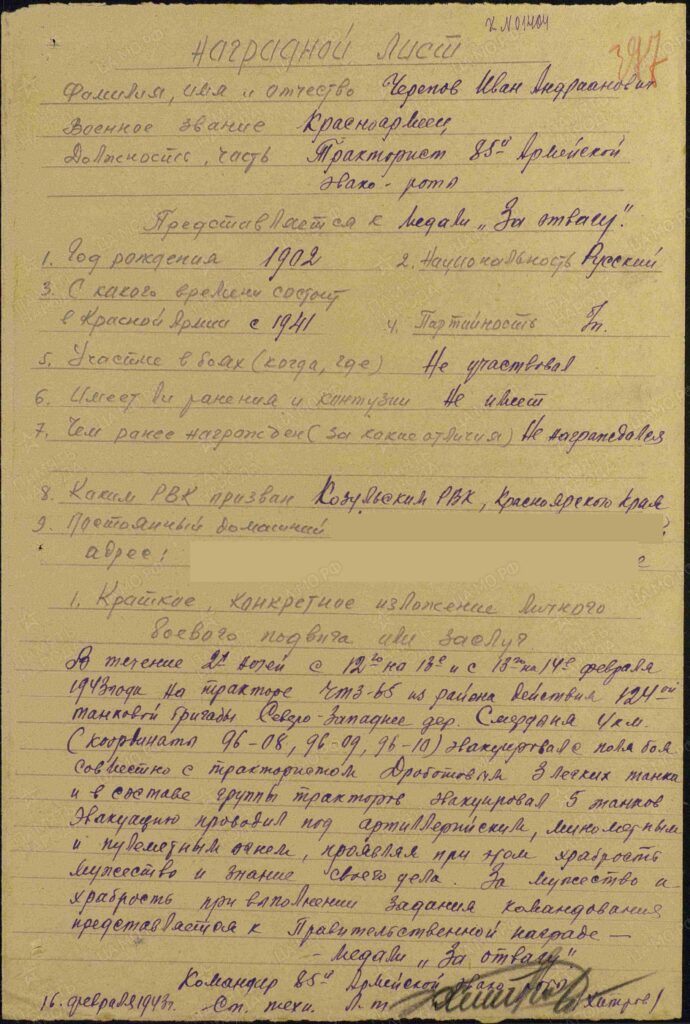 к №01404
397
Наградной лист
Фамилия, имя и отчество Черепов Иван Андрианович
Военное звание Красноармеец
Должность, часть Тракторист 85й Армейской
эвако-рота
Представляется к медали „За отвагу".
1. Год рождения 1902 2. Национальность Русский
3. С какого времени состоит
в Красной Армии с 1941 4. Партийность
5. Участие в боях (когда, где) Не участвовал
6. Имеет ли ранения и контузии Не имеет
7. Чем ранее награжден (за какие отличия) Не награждался
8. Каким РВК призван Козульским РВК, Красноярского Края
9. Постоянный домашний
адрес:
1. Краткое, конкретное изложение личного
боевого подвига или заслуг
В течение 2х ночей с 12го на 13е и с 13го на 14е февраля
1943 года на тракторе ЧТЗ-65 из района действия 124ой
танковой бригады Северо-Западнее дер. Смердыня 4 км.
(координаты 96-08, 96-09, 96-10) эвакуировал с поля боя
совместно с трактористом Дроботовым 3 легких танка
и в составе группы тракторов эвакуировал 5 танков
Эвакуацию проводил под артиллерийским, минометным
и пулеметным огнем, проявляя при этом храбрость
мужество и знание своего дела. За мужество и
храбрость при выполнении задания командования
представляется к Правительственной награде —
- медали „За отвагу"
Командир 85й Армейской эвако-роты
16. февраля 1943г. Ст. техн. Л-т (Хитров)